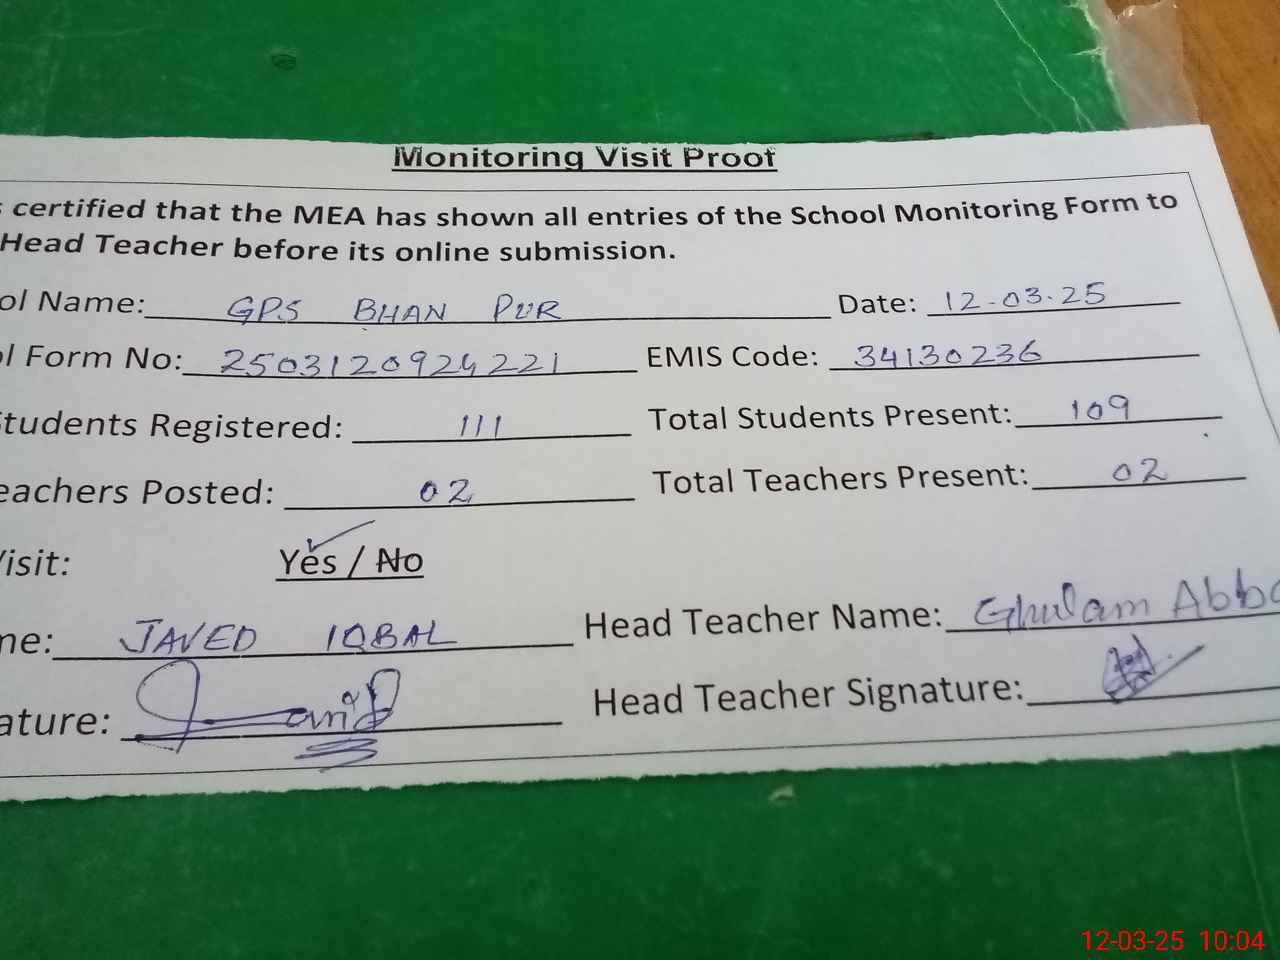 Monitoring Visit Proof
s certified that the MEA has shown all entries of the School Monitoring Form to
Head Teacher before its online submission.
ol Name: GPS BHAN PUR Date: 12-03-25
ol Form No: 2503120924221 EMIS Code: 34130236
Students Registered: 111 Total Students Present: 109
eachers Posted: 02 Total Teachers Present: 02
Visit: Yes / No
me: JAVED IQBAL Head Teacher Name: Ghulam Abba
ature: Javid Head Teacher Signature:
12-03-25 10:04